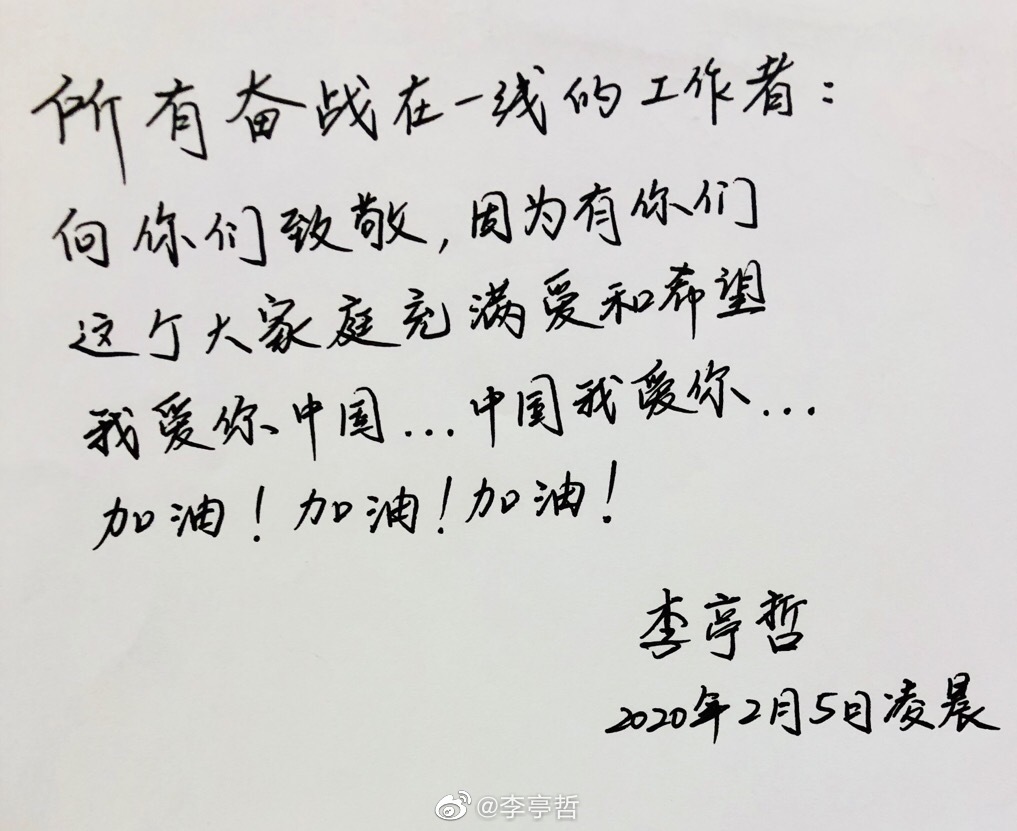 所有奋战在一线的工作者：
向你们致敬,因为有你们
这个大家庭充满爱和希望
我爱你中国...中国我爱你...
加油！加油！加油！
李亭哲
2020年2月5日凌晨
@李亭哲